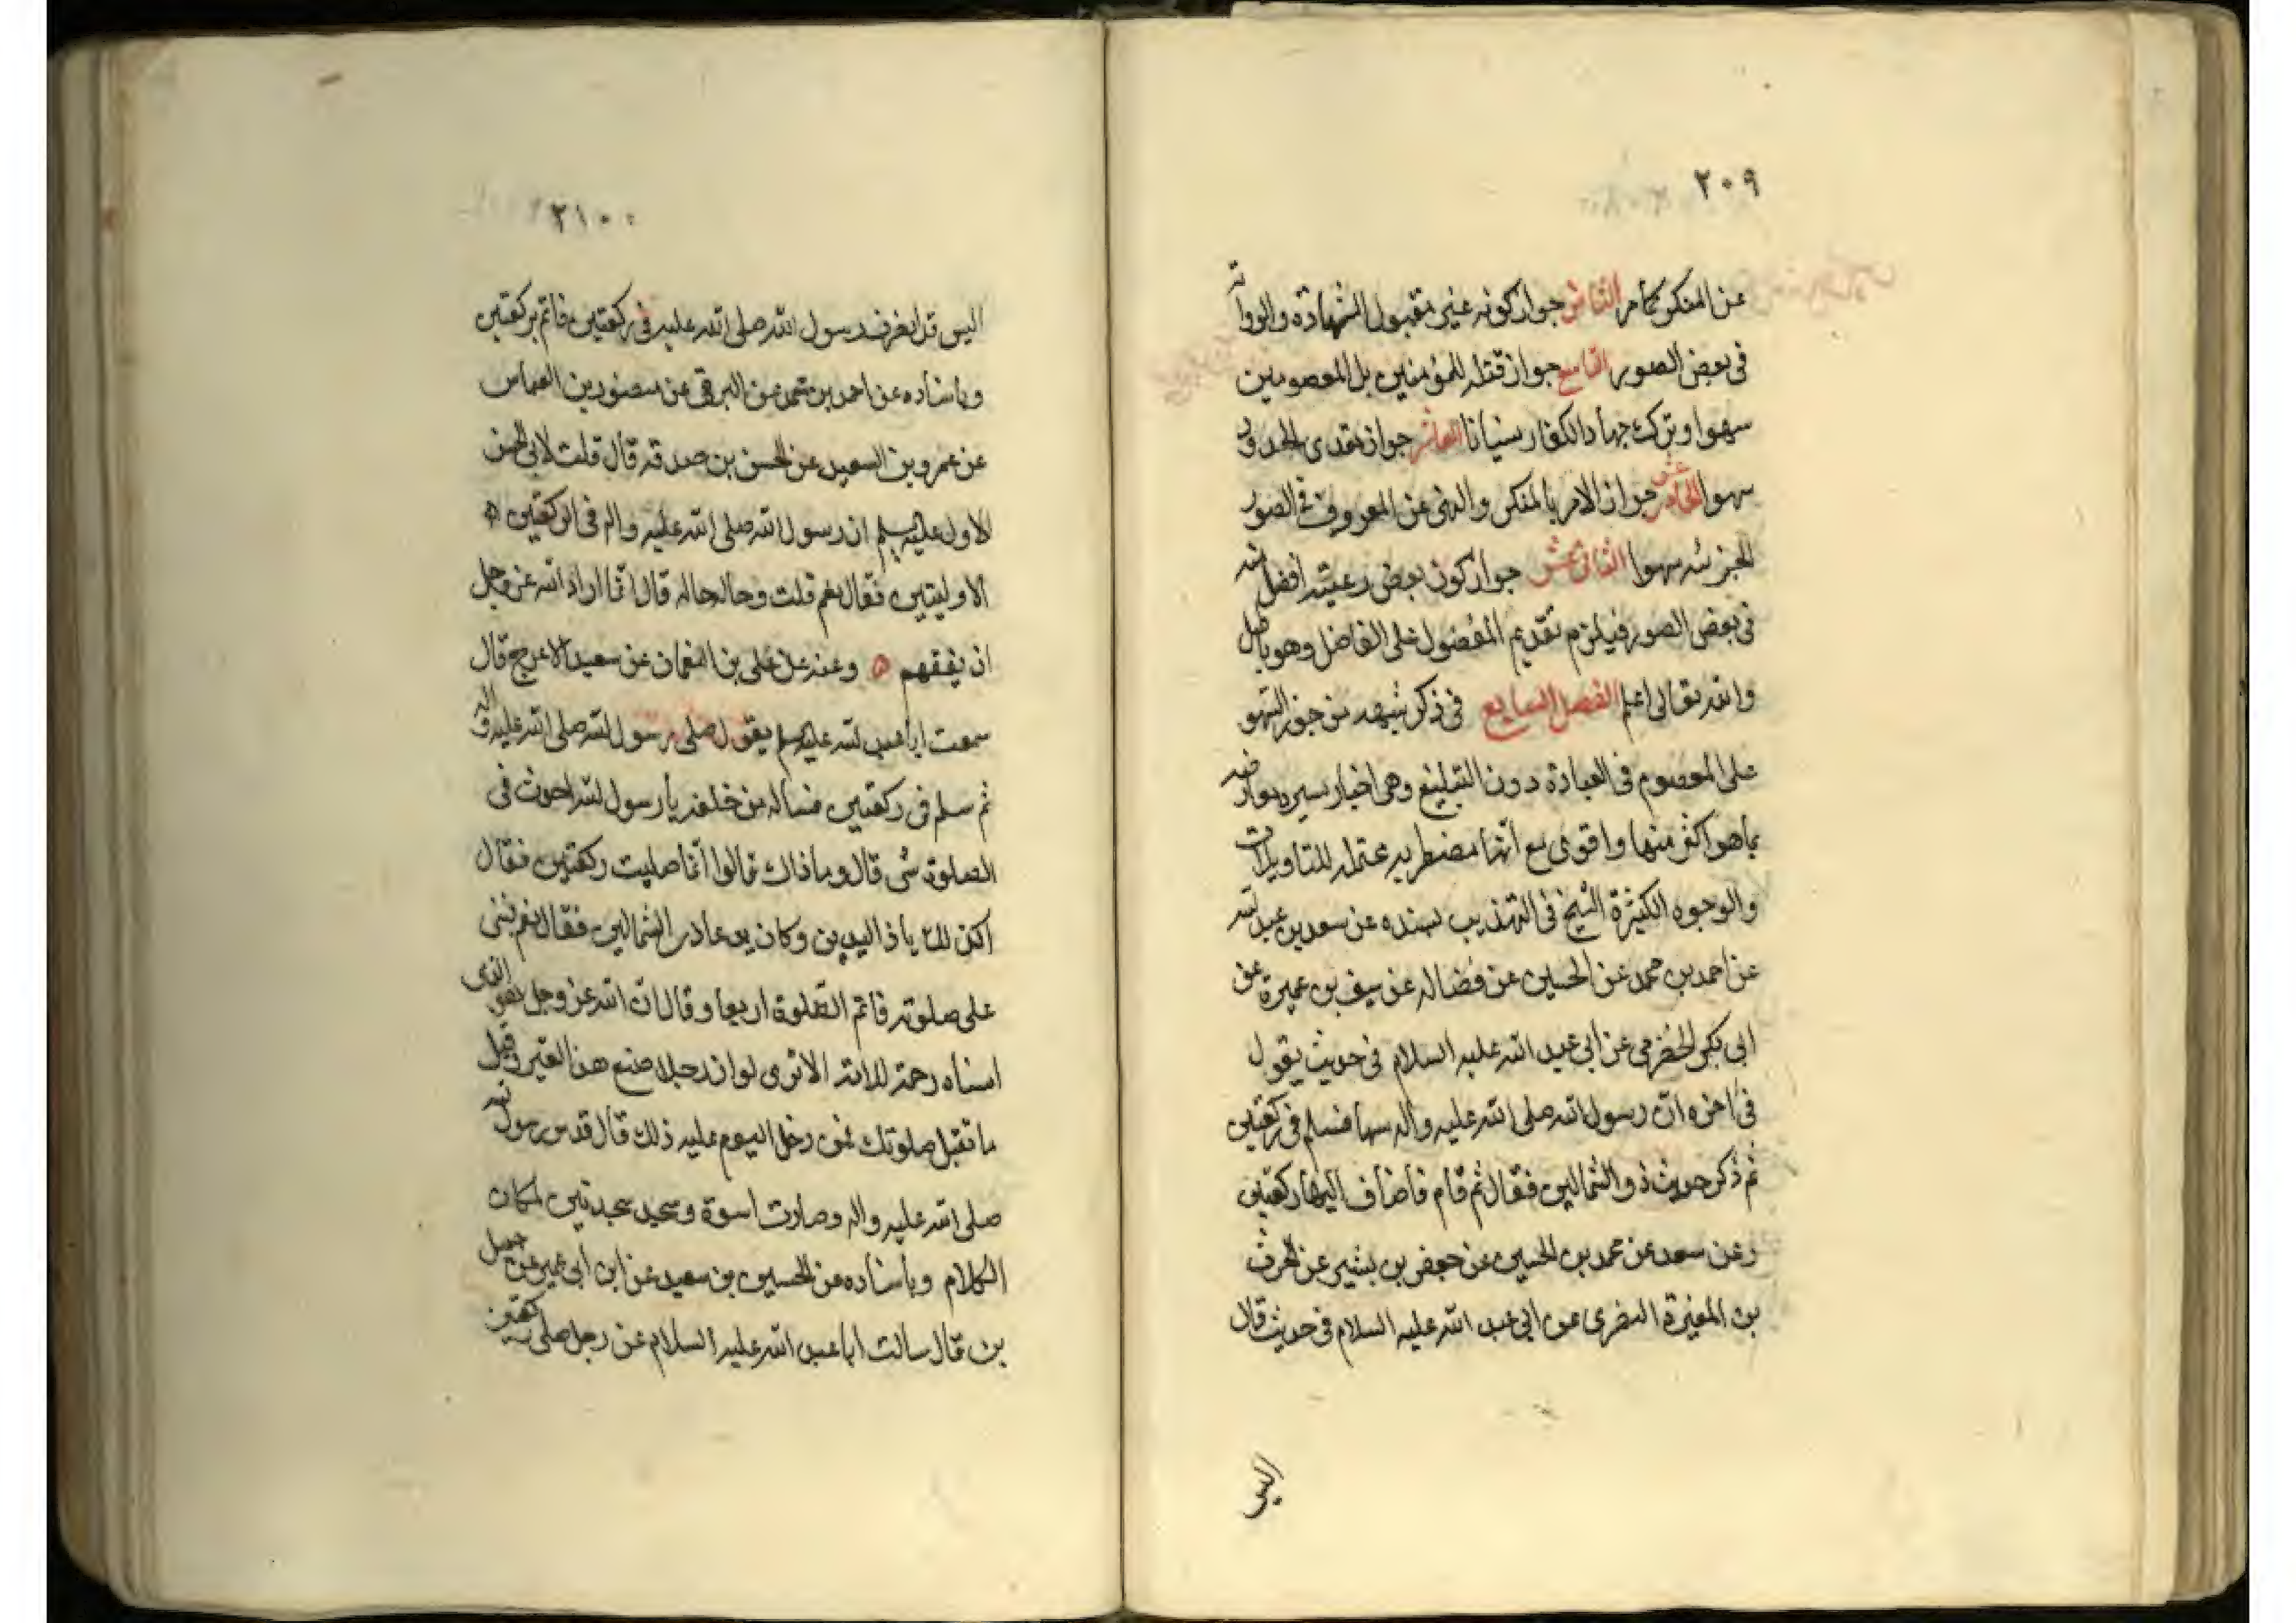 ٢٠٩
عن المنكر كما مر الثامن جواز كونه غير مقبول الشهادة والرواية
في بعض الصور التاسع جواز قتله للمؤمنين بل المعصومين
سهوا وترك جهاد الكفار نسيانا العاشر جواز تعدى الحدود
سهوا الحادي عشر جواز الامر بالمنكر والنهى عن المعروف في الصور
الجزئية سهوا الثاني عشر جواز كون بعض رعيته افضل منه
في بعض الصور فيلزم تقديم المفضول على الفاضل وهو باطل
والله تعالى اعلم الفصل السابع في ذكر شبهه من جوز السهو
على المعصوم في العبادة دون التبليغ وهي اخبار يسيره معارضه
بما هو اكثر منها واقوى مع انها مضطربه محتمله للتاويلات
والوجوه الكثيرة الشيخ في التهذيب بسنده عن سعد بن عبد الله
عن احمد بن محمد عن الحسين عن فضاله عن سيف بن عميرة عن
ابى بكر الحضرمى عن ابى عبد الله عليه السلام في حديث يقول
في اخره ان رسول الله صلى الله عليه واله سها فسلم في ركعتين
ثم ذكر حديث ذو الشمالين فقال ثم قام فاضاف اليها ركعتين
وعن سعد عن محمد بن الحسين عن جعفر بن بشير عن الحرث
بن المغيرة النضرى عن ابى عبد الله عليه السلام في حديث قال
اليس
٢١٠
اليس قد انصرف رسول الله صلى الله عليه في ركعتين فاتم بركعتين
وباسناده عن احمد بن محمد عن البرقى عن منصور بن العباس
عن عمرو بن السعيد عن الحسن بن صدقه قال قلت لابى الحسن
الاول عليه السلم ان رسول الله صلى الله عليه واله في الركعتين
الاوليتين فقال نعم قلت وحاله حاله قال انما اراد الله عز وجل
ان يفقههم وعنه عن على بن النعمان عن سعيد الاعرج قال
سمعت ابا عبد الله عليه السلم يقول صلى رسول الله صلى الله عليه واله
ثم سلم في ركعتين فساله من خلفه يا رسول الله احدث في
الصلوة شى قال وما ذاك قالوا انما صليت ركعتين فقال
اكذلك يا ذا اليدين وكان يدعا ذى الشمالين فقال نعم فبنى
على صلوته فاتم الصلوة اربعا وقال ان الله عز وجل هو الذى
انساه رحمة للامة الا ترى لو ان رجلا صنع هذا لعير وقيل
ما تقبل صلوتك فمن دخل اليوم عليه ذلك قال قد سن رسول الله
صلى الله عليه واله وصارت اسوة وسجد سجدتين لمكان
الكلام وباسناده عن الحسين بن سعيد عن ابن ابى عمير عن جميل
بن قال سالت ابا عبد الله عليه السلام عن رجل صلى ركعتين